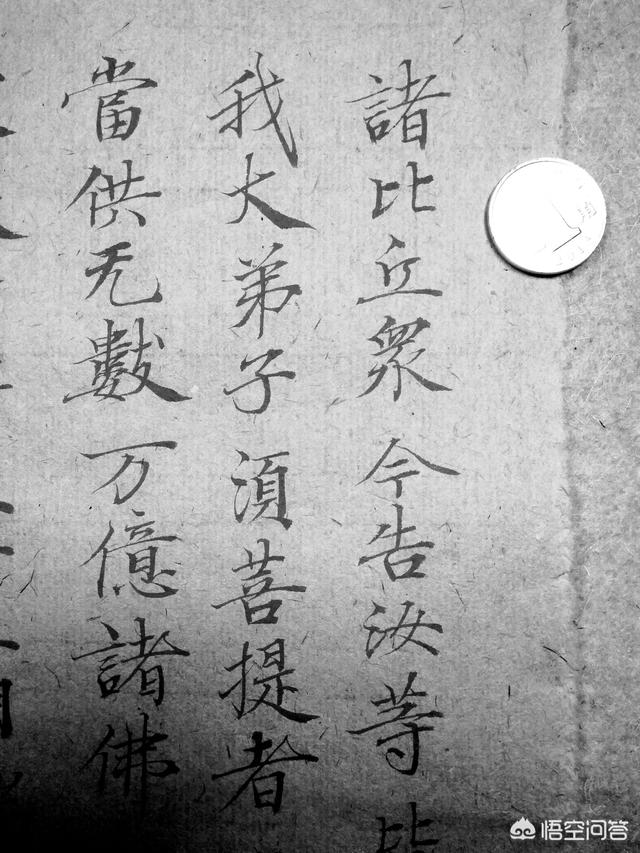 諸比丘衆 今告汝等
我大弟子 須菩提者
當供无數 万億諸佛
1
悟空问答